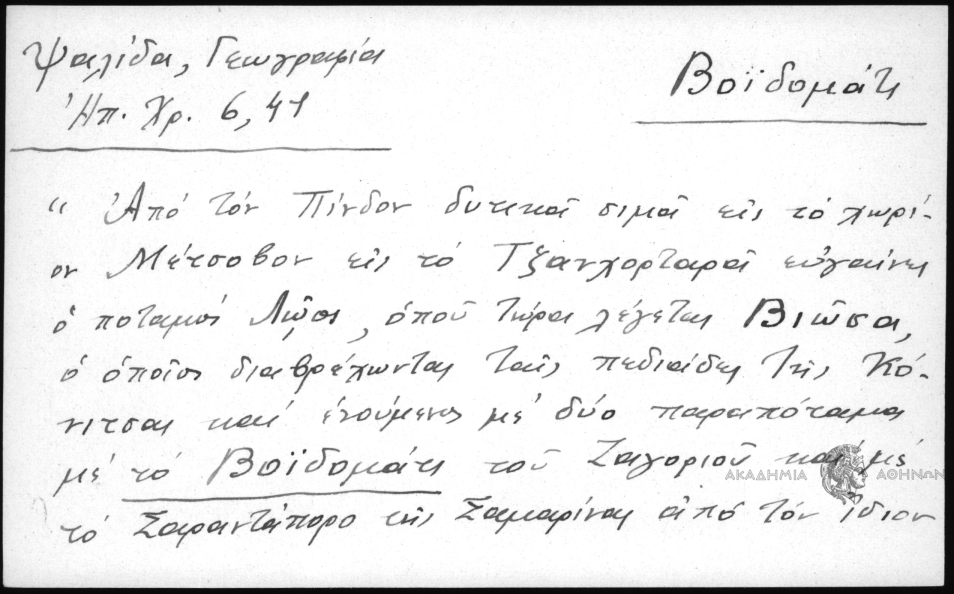 Ψαλίδα, Γεωγραφία
Ἠπ. Χρ. 6, 41
Βοϊδομάτι
“ Ἀπό τόν Πίνδον δυτικά σιμά εἰς τό χωρί-
ον Μέτσοβον εἰς τό Τζανχορταρά εὐγαίνει
ὁ ποταμός Λῷος, ὁποῦ τώρα λέγεται Βιῶσα,
ὁ ὁποῖος διαβρέχωντας ταῖς πεδιάδες τῆς Κό-
νιτσας καί ἑνούμενος μέ δύο παραπόταμα
μέ τό Βοϊδομάτι τοῦ Ζαγοριοῦ καί μέ
τό Σαραντάπορο τῆς Σαμαρίνας ἀπό τόν ἴδιον
ΑΚΑΔΗΜΙΑ ΑΘΗΝΩΝ